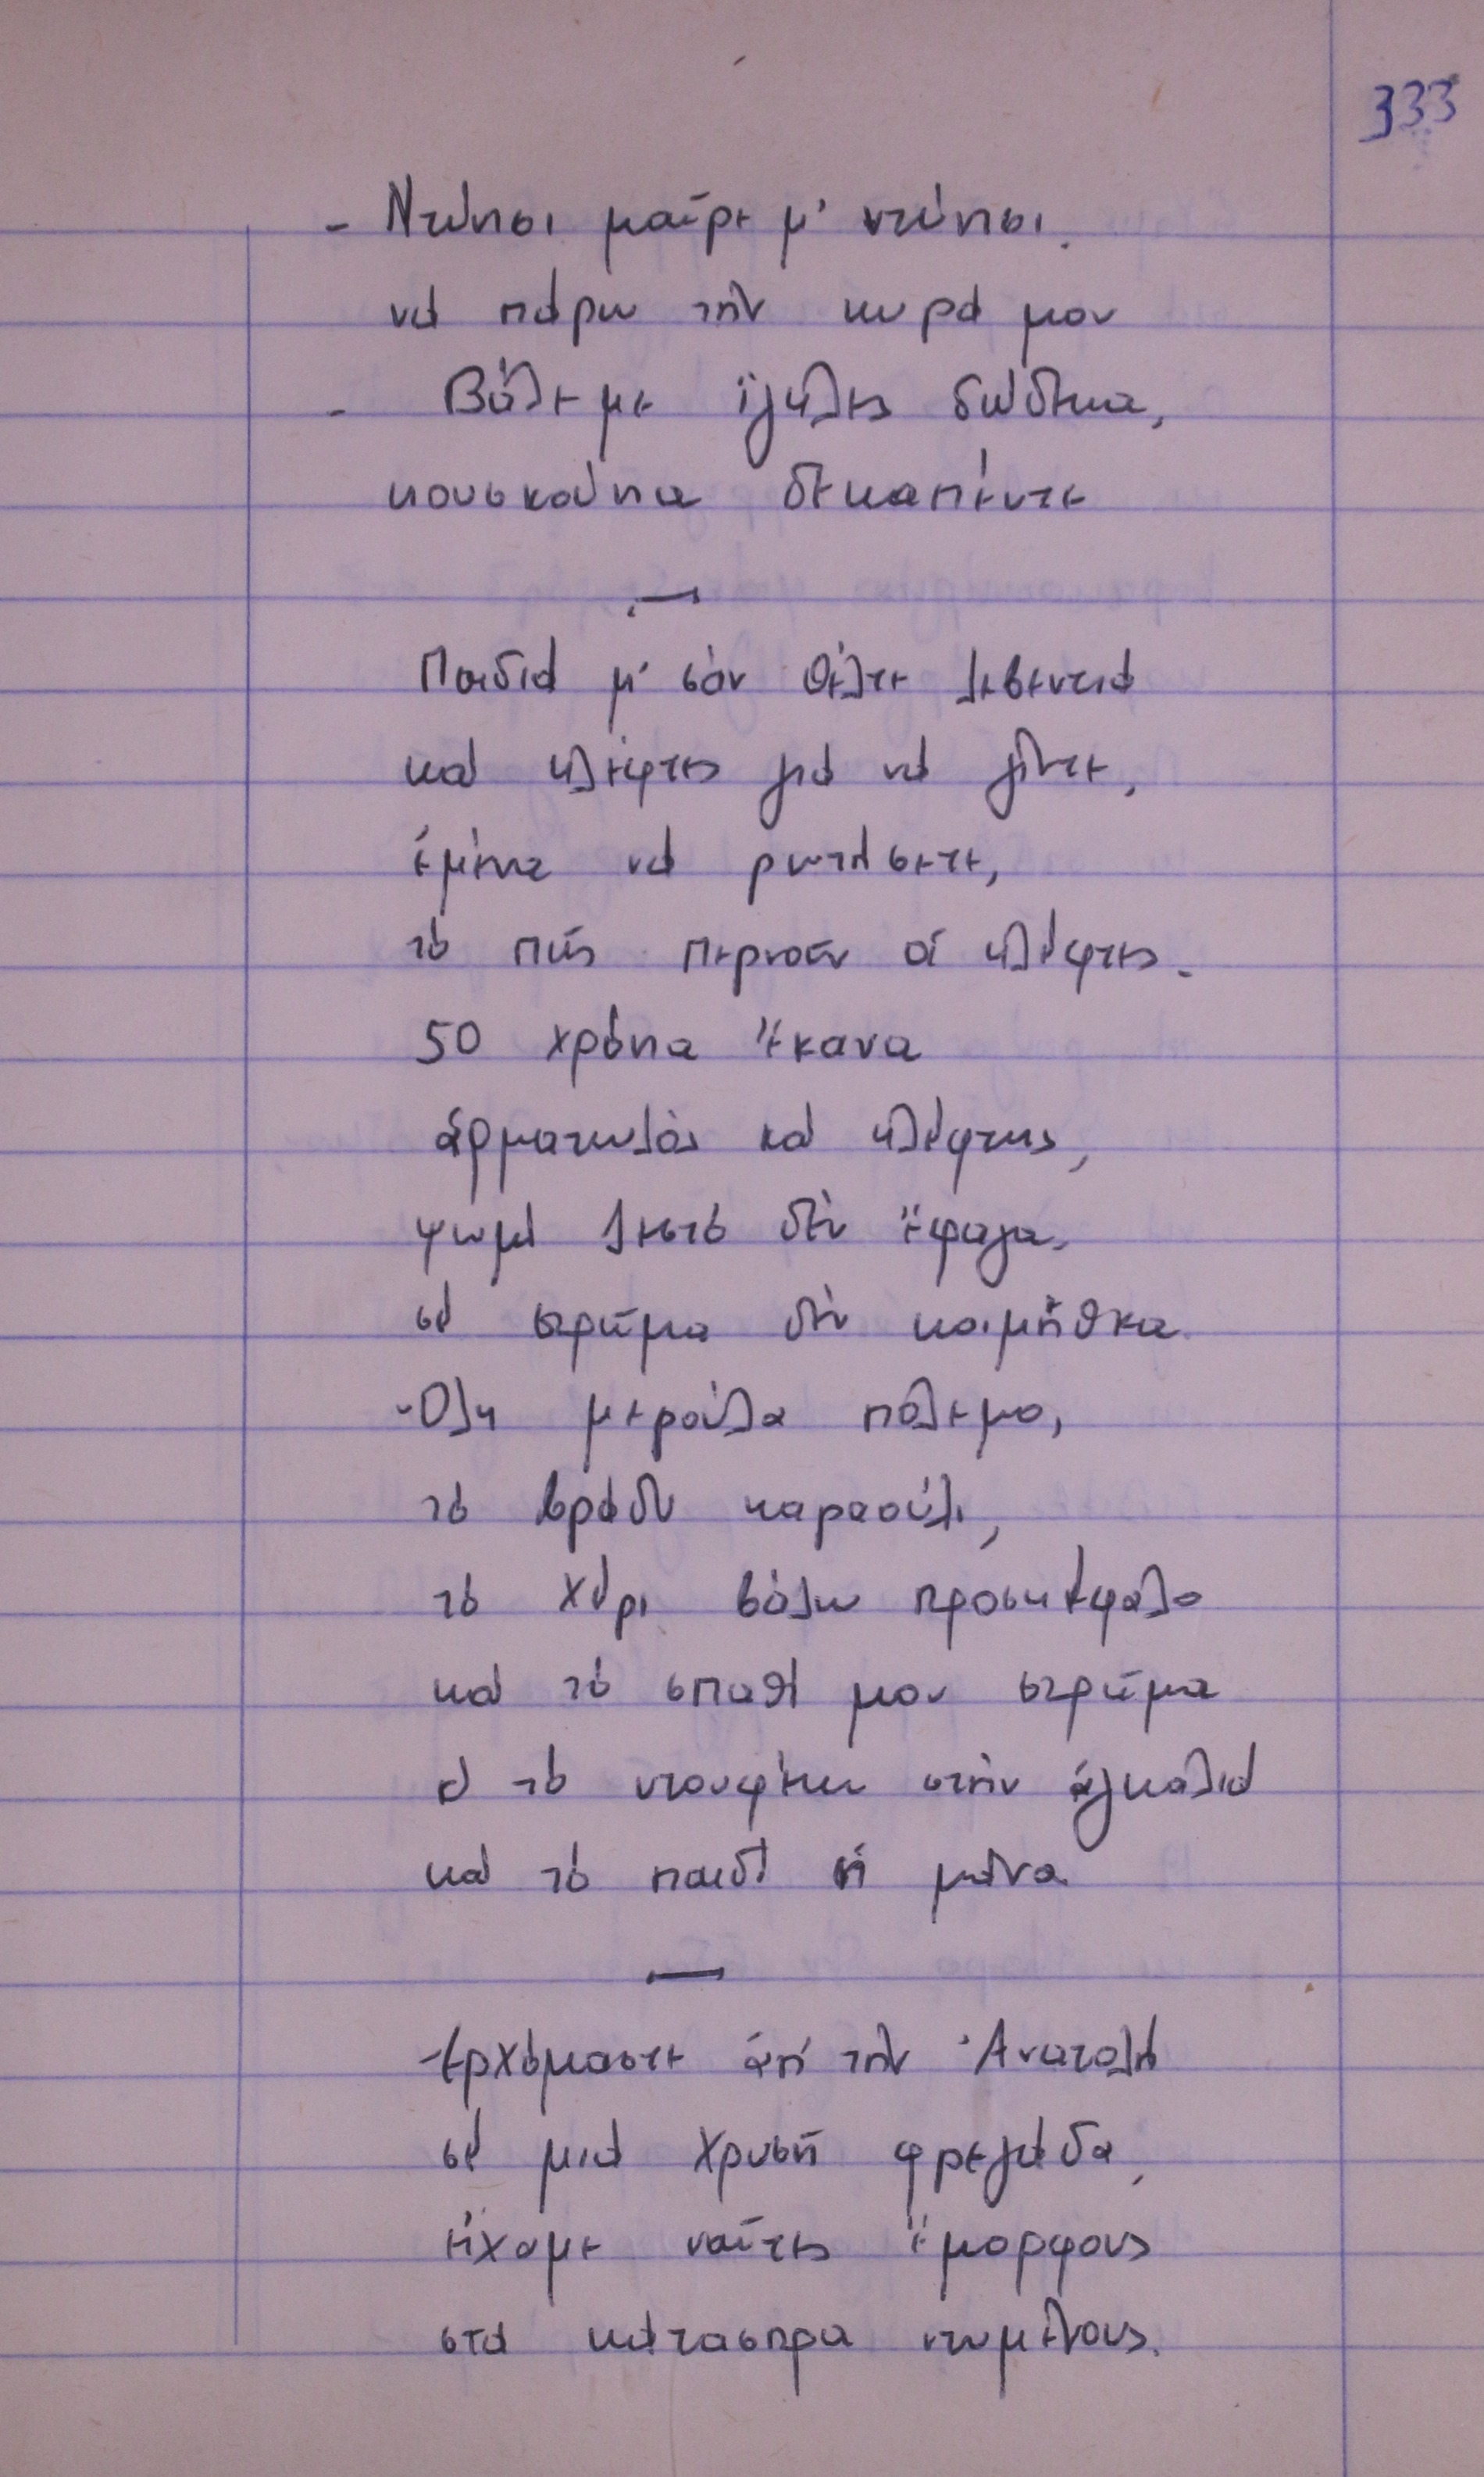 333
- Ντύησι μαύρε μ' ντύησι.
νά πάρω τήν κυρά μου
- Βάλε με ἴγγλες δώδεκα,
κουσκούνια δεκαπέντε
—
Παιδιά μ' σάν θέλτε λεβεντιά
καί κλέφτες γιά νά γίντε,
ἐμένα νά ρωτήσετε,
τό πώς περνοῦν οἱ κλέφτες.
50 χρόνια ἔκανα
ἀρματωλός καί κλέφτης,
ψωμί ζεστό δέν ἔφαγα,
σέ στρῶμα δέν κοιμήθκα.
-Ολη μερούλα πόλεμο,
τό βράδυ καραούλι,
τό χέρι βάλω προσκέφαλο
καί τό σπαθί μου στρῶμα
κί τό ντουφέκι στήν ἀγκαλιά
καί τό παιδί ἡ μάνα.
—
-Ερχόμαστε ἀπ' τήν Ἀνατολή
σέ μιά χρυσῆ φρεγάδα,
εἴχαμε ναῦτες ἔμορφους
στά κάτασπρα ντυμένους.